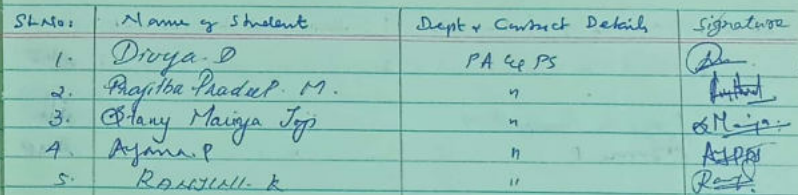 SL.No: Name of Student Dept & Contact Details Signature
1. Divya. D PA & PS
2. Prajitha Pradeep. M. "
3. Stany Mairya Joji "
4. Ayana. P "
5. RANJINI. K "